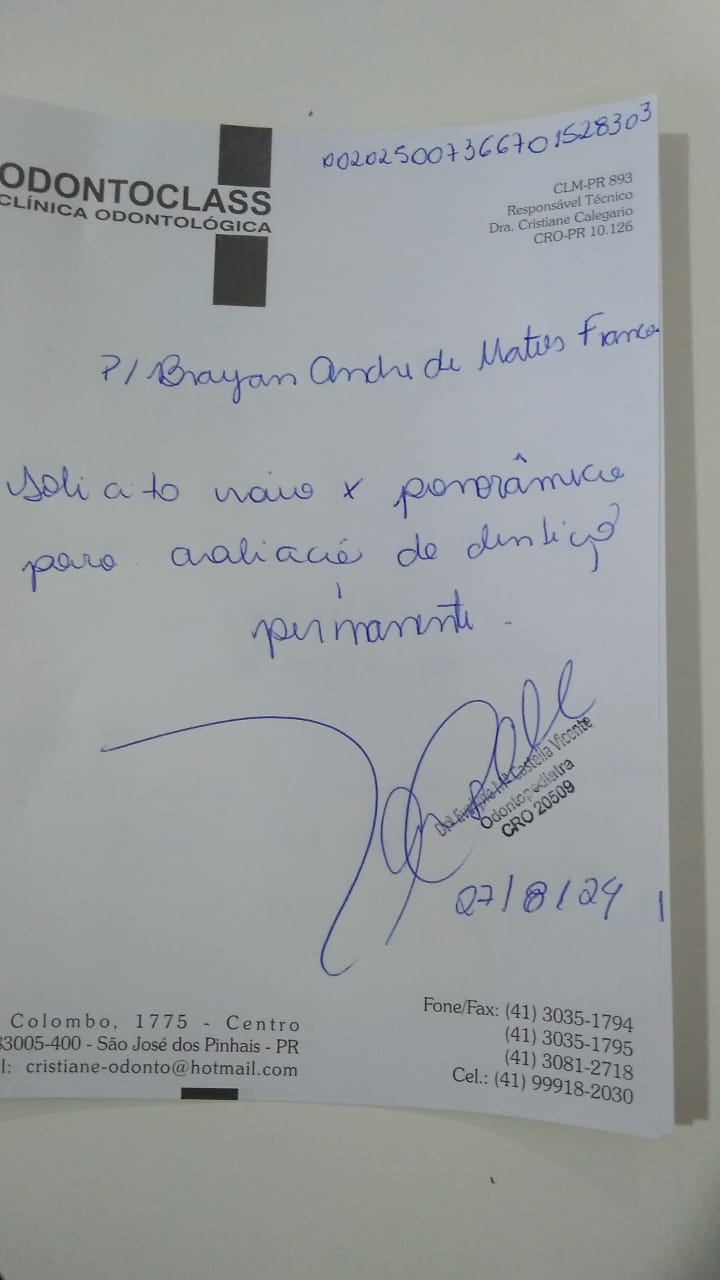 002025007366701528303
ODONTOCLASS
CLÍNICA ODONTOLÓGICA
CLM-PR 893
Responsável Técnico
Dra. Cristiane Calegario
CRO-PR 10.126
P/ Brayan Andre de Matos Franco
Solicito raio x panorâmica
para avaliação de dentiçõ
permanente.
Castella Vicente
Odontopediatra
CRO 20509
27/8/24
Colombo, 1775 - Centro
83005-400 - São José dos Pinhais - PR
l: cristiane-odonto@hotmail.com
Fone/Fax: (41) 3035-1794
(41) 3035-1795
(41) 3081-2718
Cel.: (41) 99918-2030